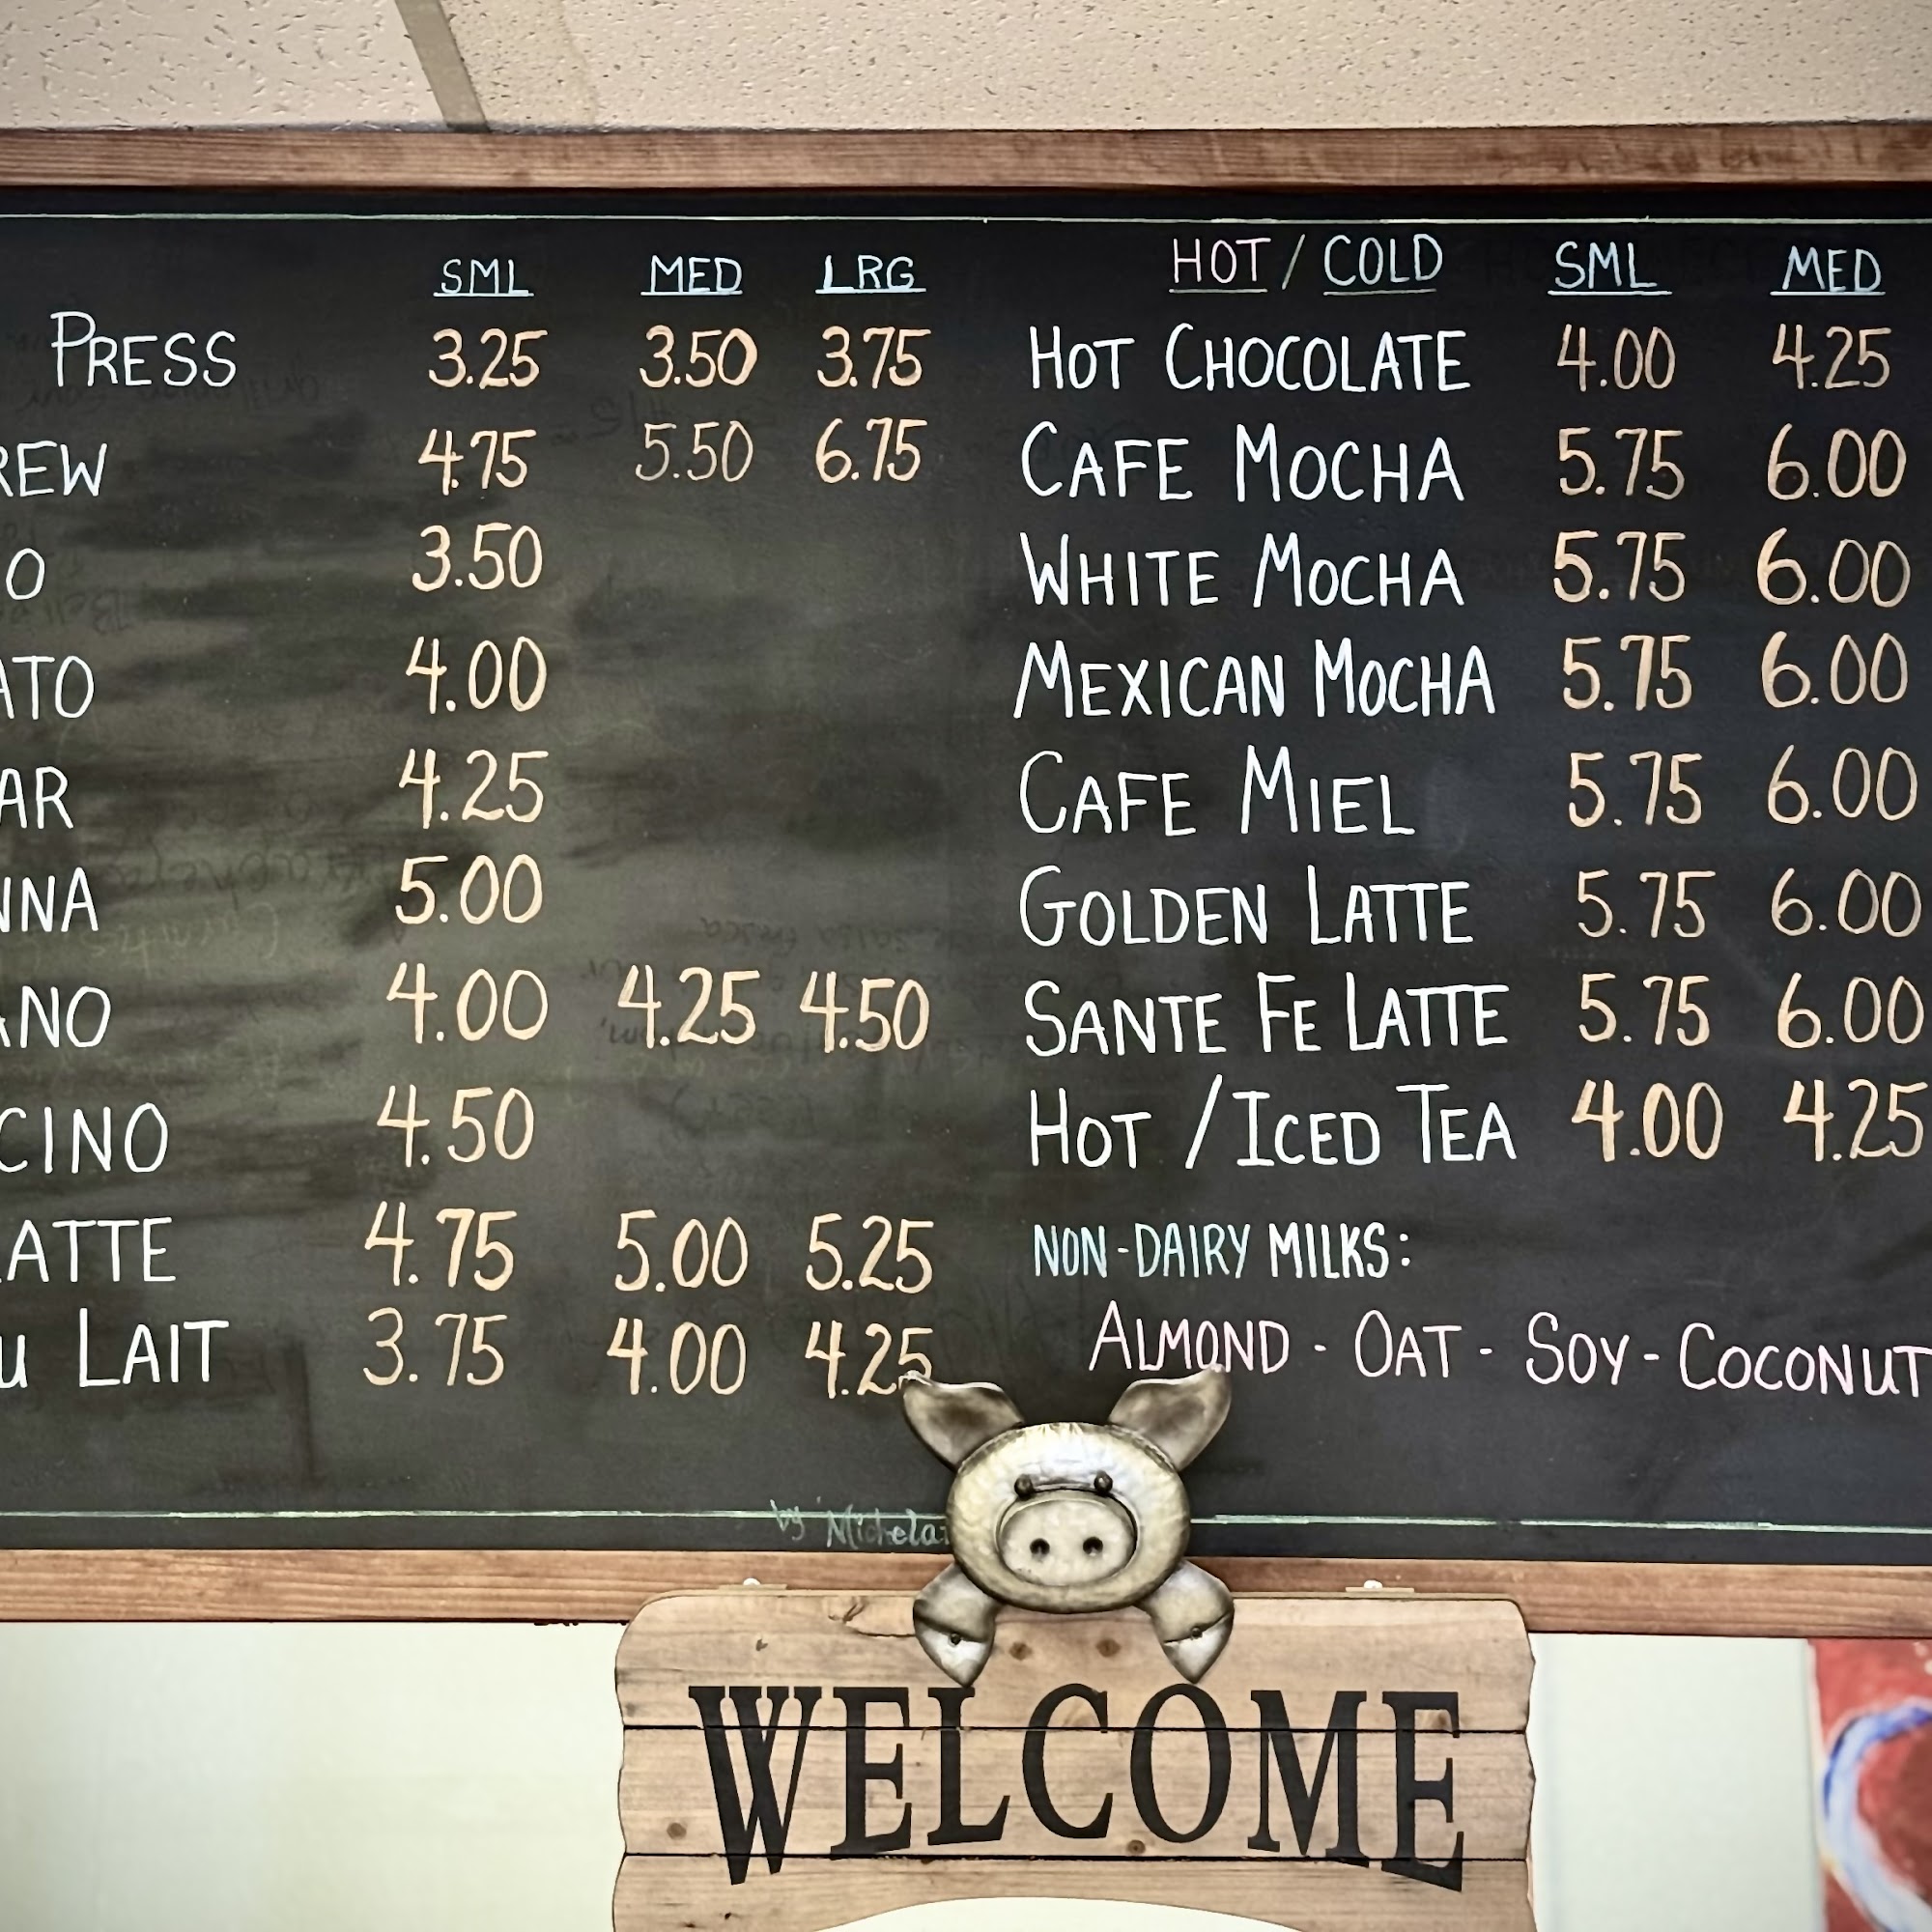 SML MED LRG
PRESS 3.25 3.50 3.75
REW 4.75 5.50 6.75
O 3.50
ATO 4.00
AR 4.25
NNA 5.00
ANO 4.00 4.25 4.50
CINO 4.50
LATTE 4.75 5.00 5.25
u LAIT 3.75 4.00 4.25
by Michela
HOT / COLD SML MED
HOT CHOCOLATE 4.00 4.25
CAFE MOCHA 5.75 6.00
WHITE MOCHA 5.75 6.00
MEXICAN MOCHA 5.75 6.00
CAFE MIEL 5.75 6.00
GOLDEN LATTE 5.75 6.00
SANTE FE LATTE 5.75 6.00
HOT / ICED TEA 4.00 4.25
NON-DAIRY MILKS:
ALMOND - OAT - SOY - COCONUT
WELCOME